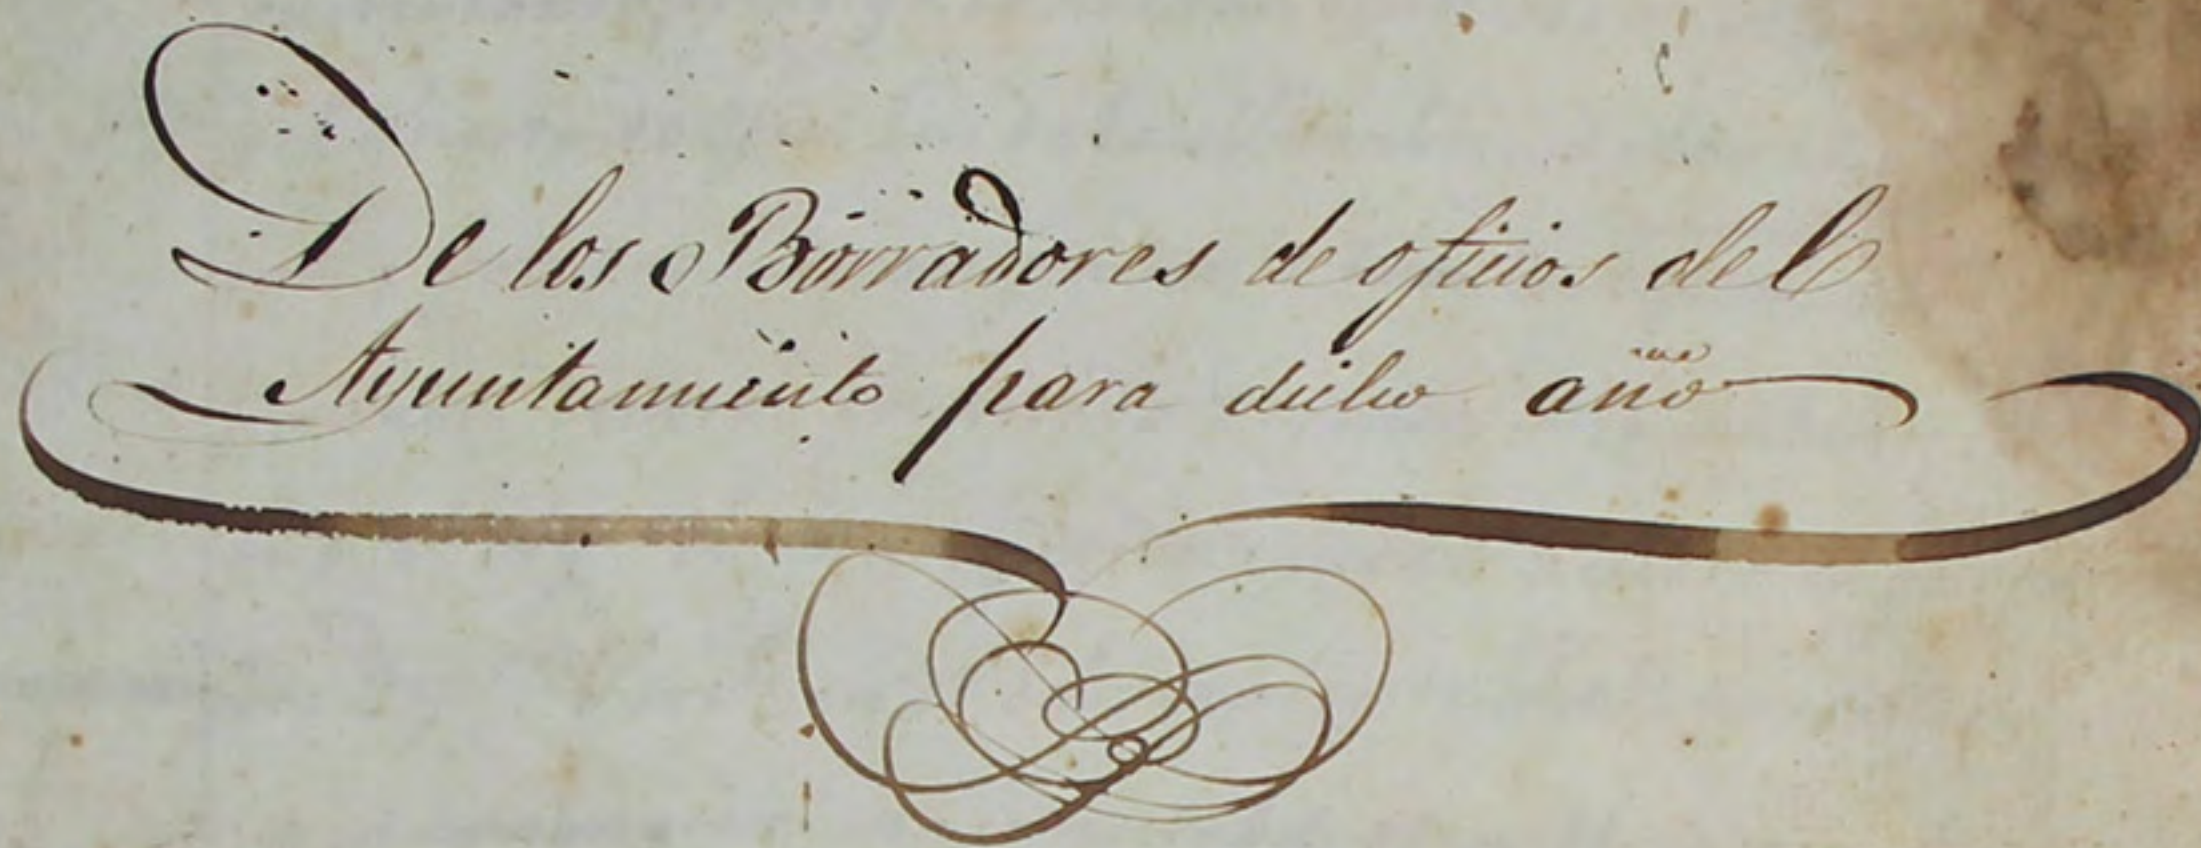 De los Borradores de oficios del
Ayuntamiento para dicho año